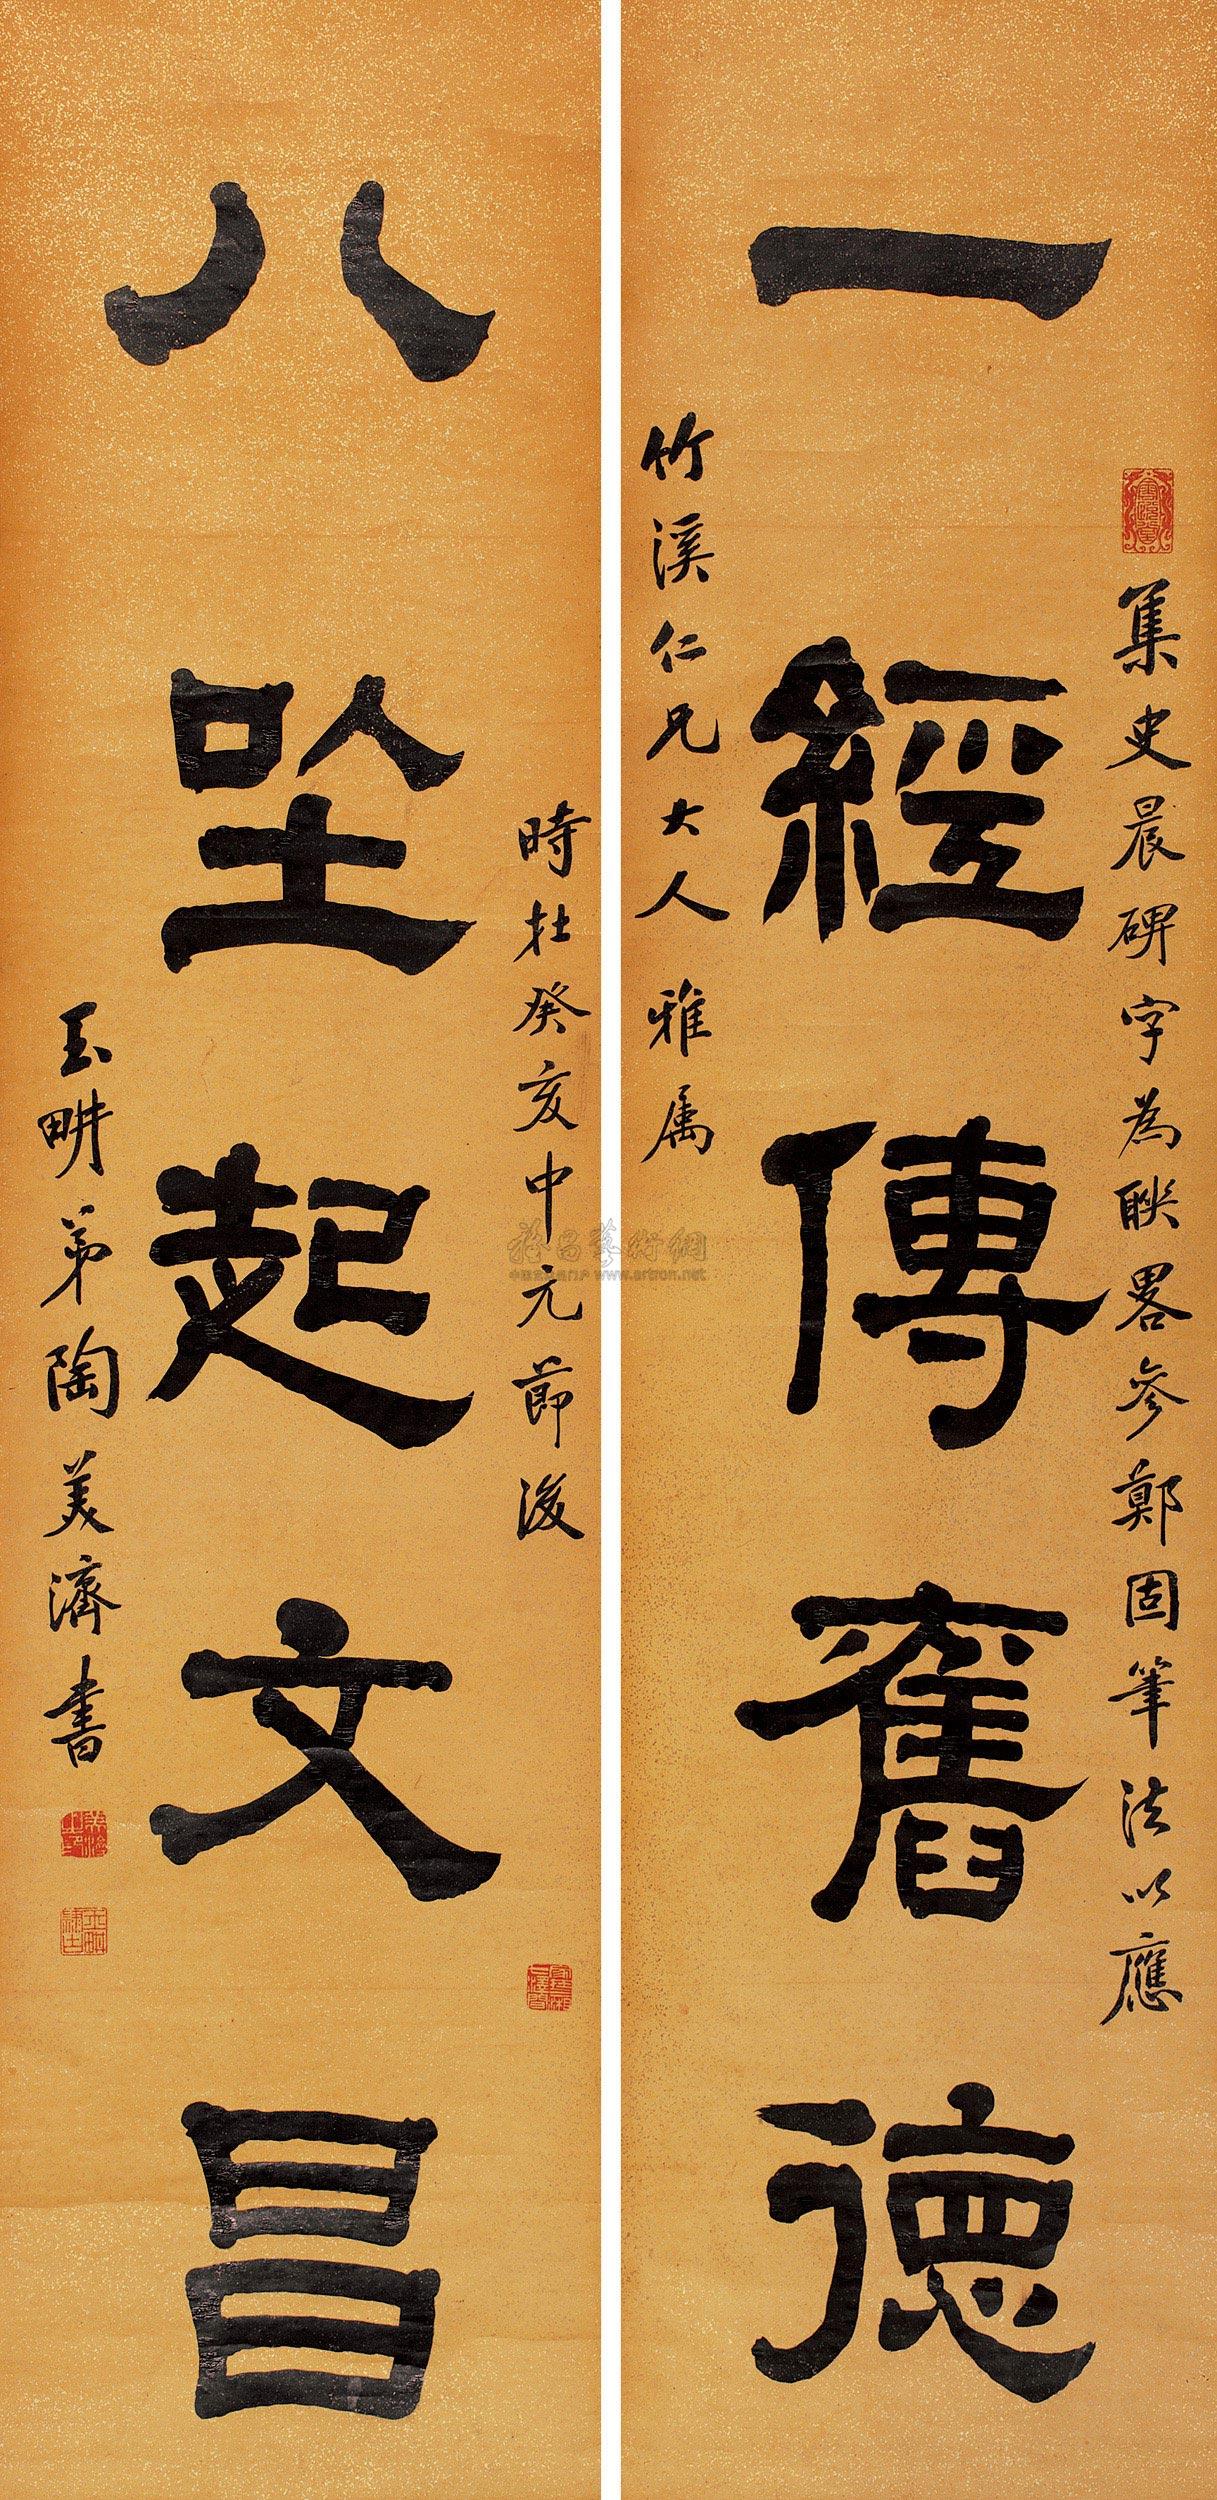 集史晨碑字為聯畧參鄭固筆法以應
一經傳舊德
竹溪仁兄大人雅属
時在癸亥中元節後
八坐起文昌
玉畊弟陶美濟書
雅昌藝術網
www.artron.net